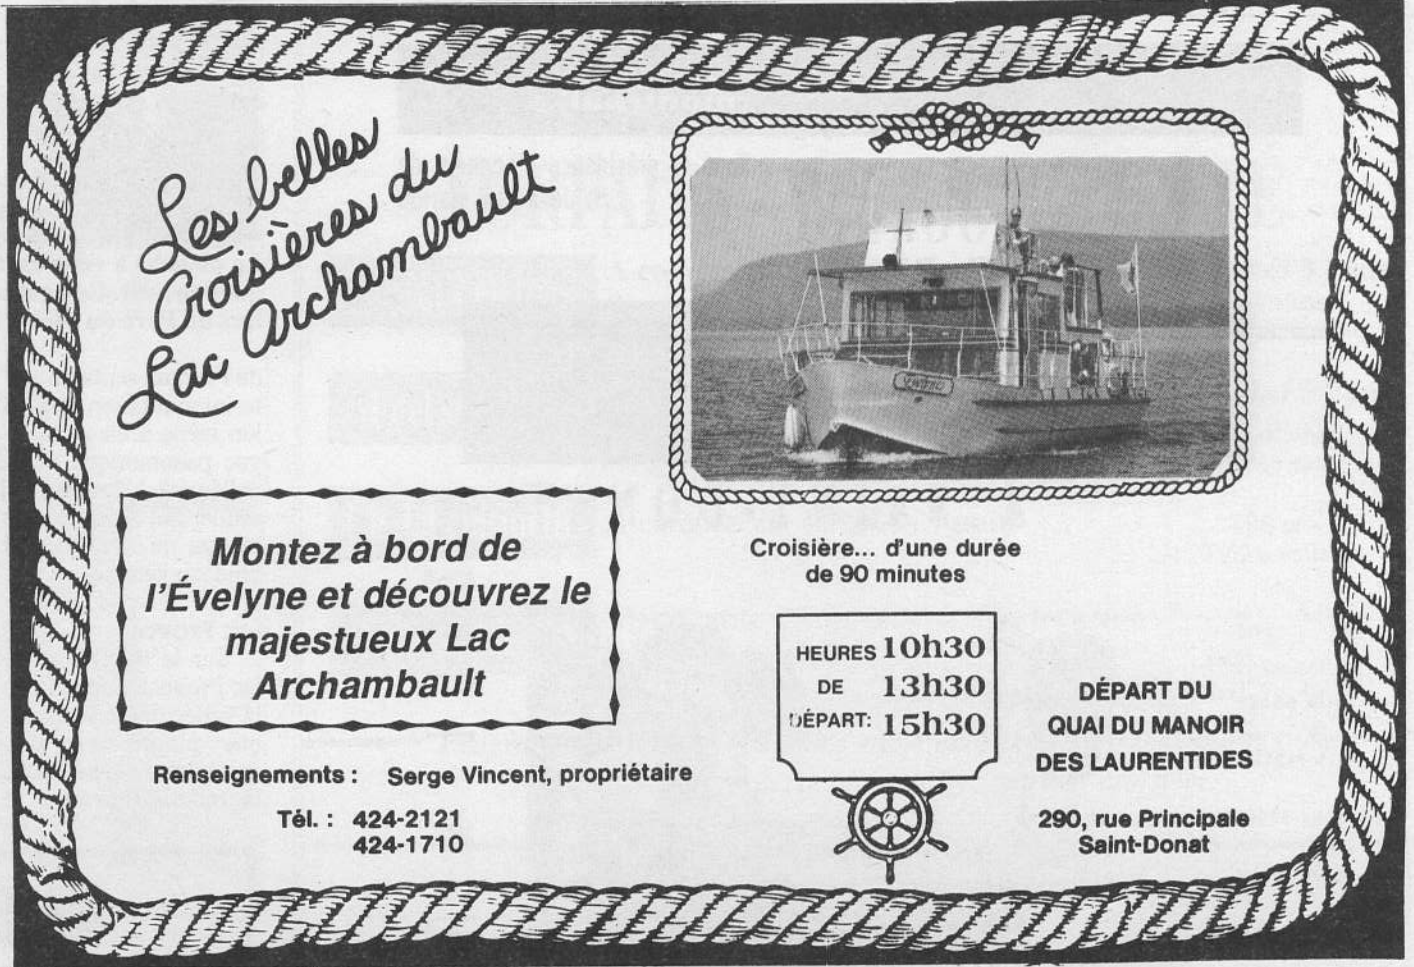 Les belles
Croisières du
Lac Archambault
Montez à bord de
l'Évelyne et découvrez le
majestueux Lac
Archambault
Renseignements : Serge Vincent, propriétaire
Tél. : 424-2121
424-1710
Croisière... d'une durée
de 90 minutes
HEURES 10h30
DE 13h30
DÉPART: 15h30
DÉPART DU
QUAI DU MANOIR
DES LAURENTIDES
290, rue Principale
Saint-Donat